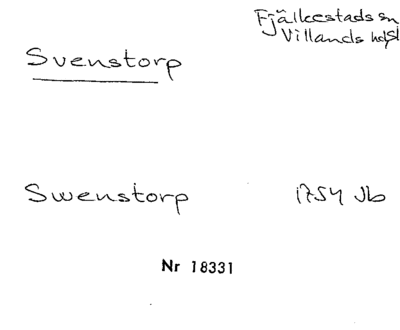 Fjälkestads sn
Villands hd
Svenstorp
Swenstorp 1754 Jb
Nr 18331